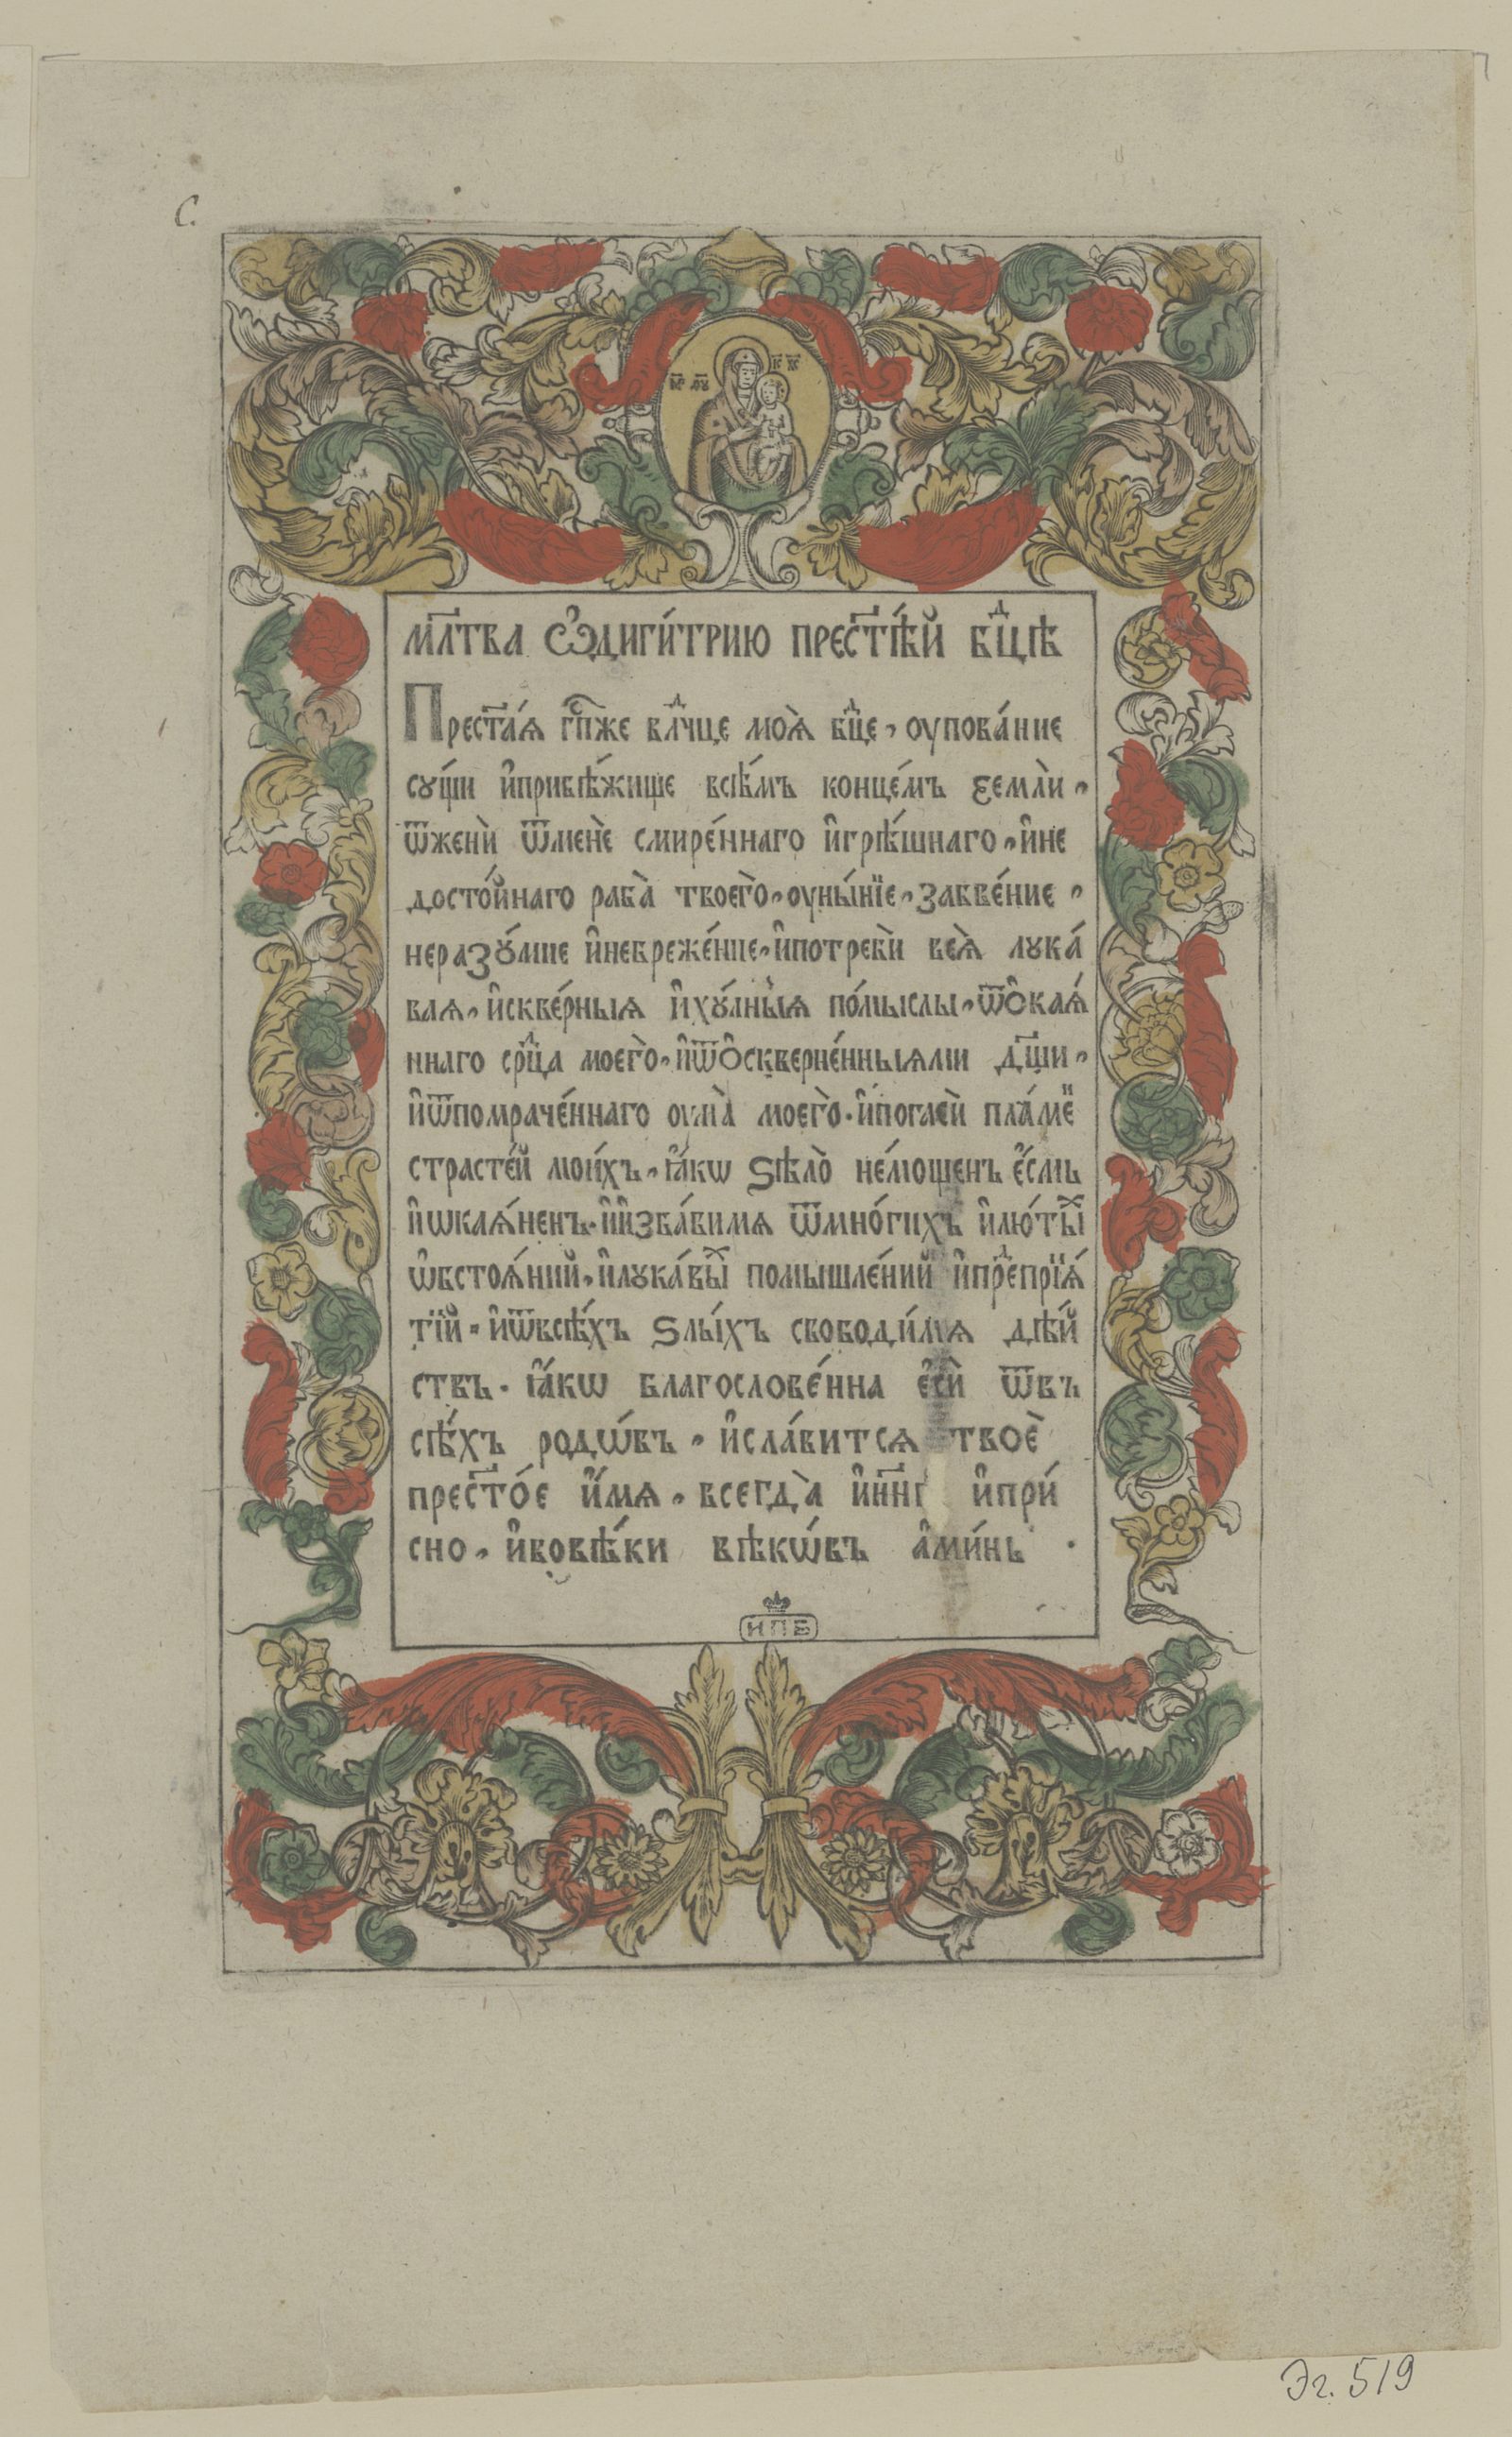 С.
м҃р ѳ҃у і҃с х҃с
мл҃тва ѡ҆дигі́трию прест҃ѣ́й бцⷣѣ
Прест҃а́ѧ гп҃же влⷣчце моѧ̀ бцⷣе, ѹпова́ние
су́щи и҆прибѣ́жище всѣ́мъ конце́мъ землѝ,
ѿженѝ ѿменѐ смире́ннаго и҆грѣ́шнаго, и҆не
досто́йнаго раба̀ твоего̀, ѹны́нїе, забве́ние,
неразꙋ́мие и҆небреже́ние, и҆потребѝ всѧ̀ лꙋка́
ваѧ, и҆скве́рныѧ и҆хꙋ́лныѧ по́мыслы, ѿо҆каѧ́
ннаго срⷣца моего̀, и҆ѿо҆скверне́нныѧми дш҃и,
и҆ѿпомраче́ннаго ѹма̀ моего̀. и҆погасѝ пла́мє
страсте́й мои́хъ, ꙗ҆́кѡ ѕѣло̀ не́мощенъ є҆́смь
и҆ѡкаѧ́ненъ. и҆и҆зба́вимѧ ѿмно́гихъ и҆лю́тыⷯ
ѡ҆бстоѧ́ний, и҆лꙋка́выⷯ помышле́ний и҆преⷣприїѧ́
тїй. и҆ѿвсѣ́хъ ѕлы́хъ свободи́мѧ дѣ́й
ствъ. ꙗ҆́кѡ благослове́нна є҆сѝ ѿвъ
сѣ́хъ родѡ́въ, и҆сла́витсѧ твоѐ
прест҃о́е и҆́мѧ, всегда̀ и҆при́
сно, и҆вовѣ́ки вѣкѡ́въ а҆ми́нь.
НПБ
Эг. 519